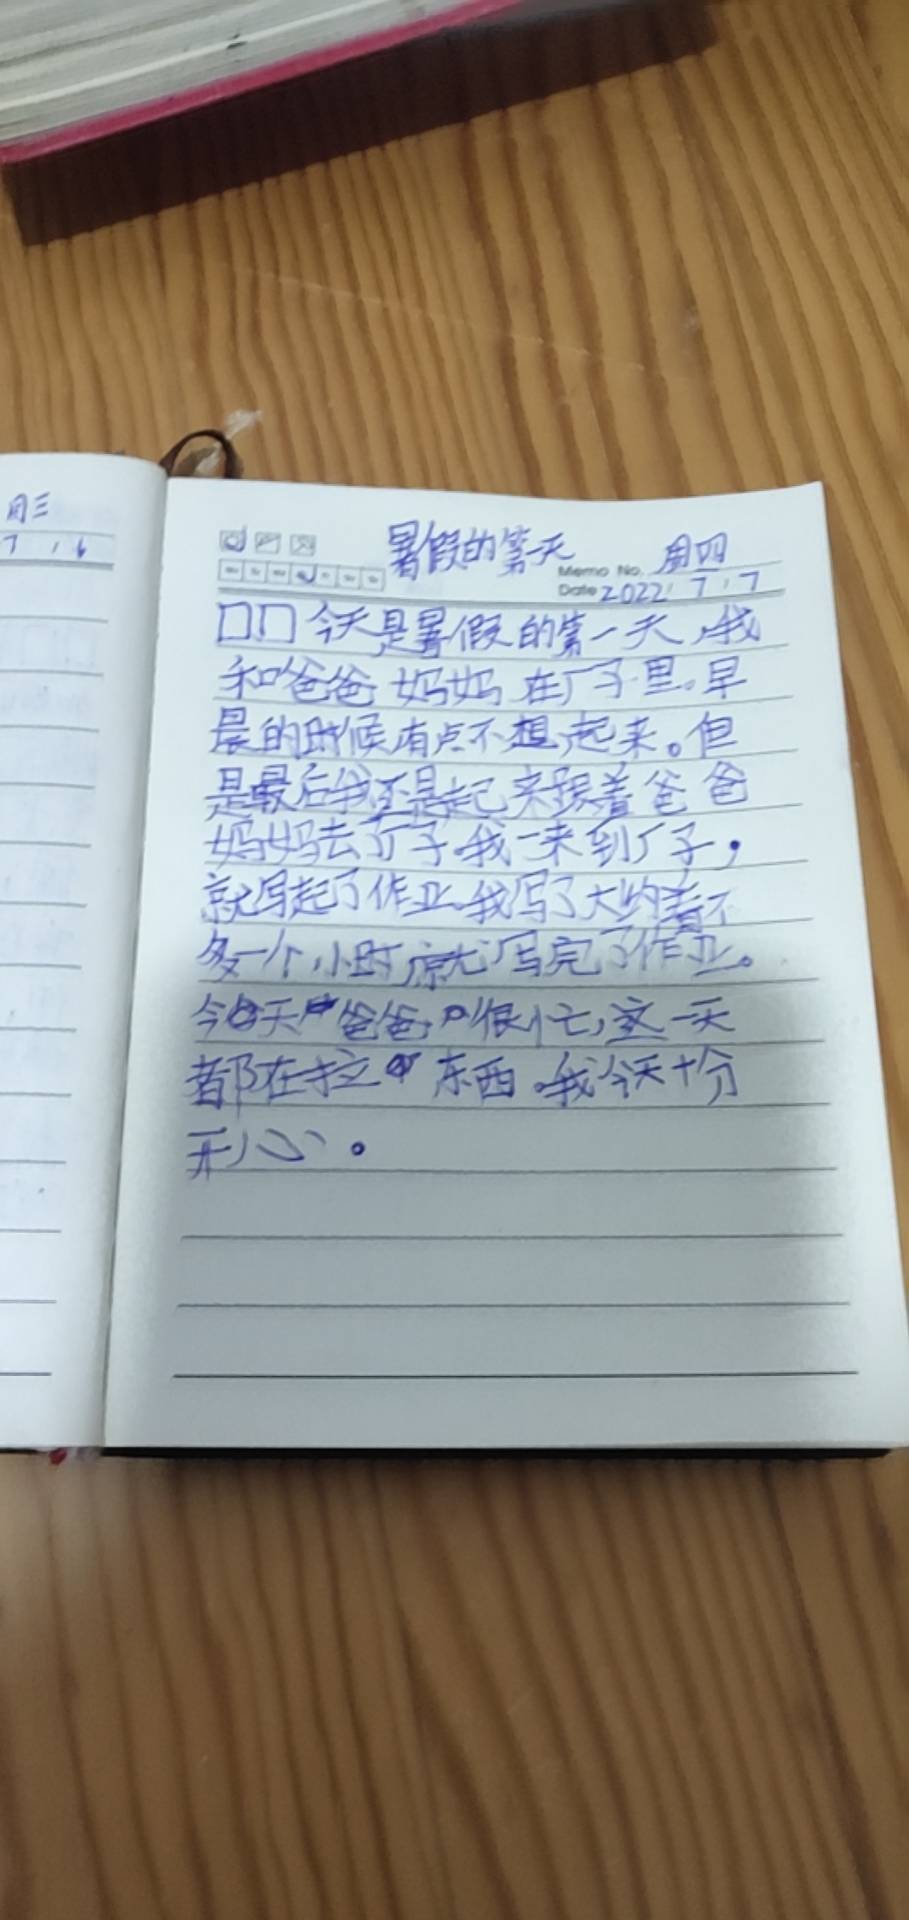 周三
7 , 6
暑假的第一天
Memo No. 周四
Date 2022 , 7 , 7
口口今天是暑假的第一天,我
和爸爸妈妈在厂子里。早
晨的时候有点不想起来。但
是最后我还是起来跟着爸爸
妈妈去了厂子.我一来到厂子,
就写起了作业.我写了大约差不
多一个小时就写完了作业。
今天爸爸很忙,这一天
都在拉东西.我今天十分
开心。